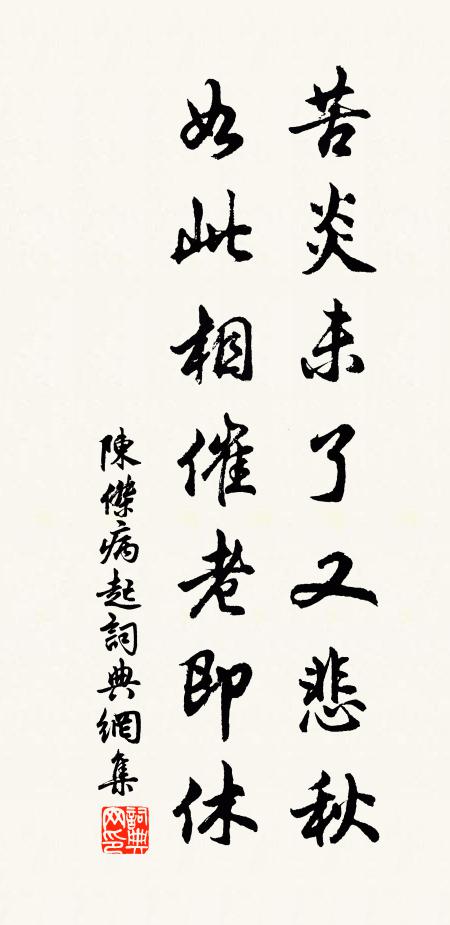 苦炎未了又悲秋
如此相催老即休
陳傑病起詞典網集
詞典網印